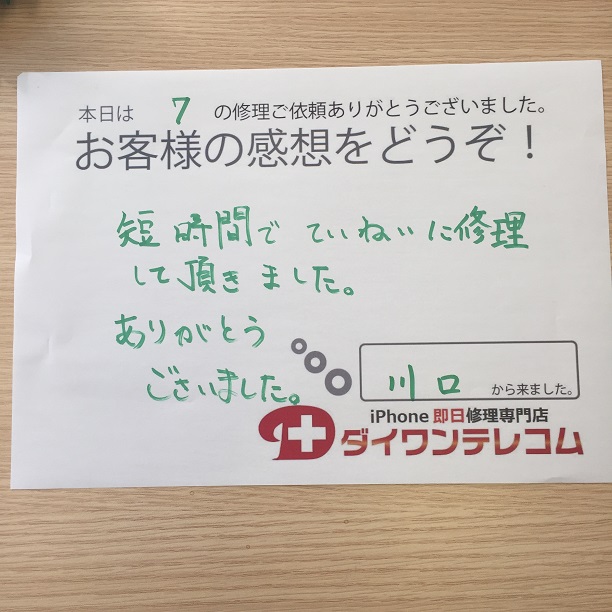 本日は 7 の修理ご依頼ありがとうございました。
お客様の感想をどうぞ！
短時間で ていねいに修理
して頂きました。
ありがとう
ございました。
川口 から来ました。
iPhone 即日修理専門店
ダイワンテレコム